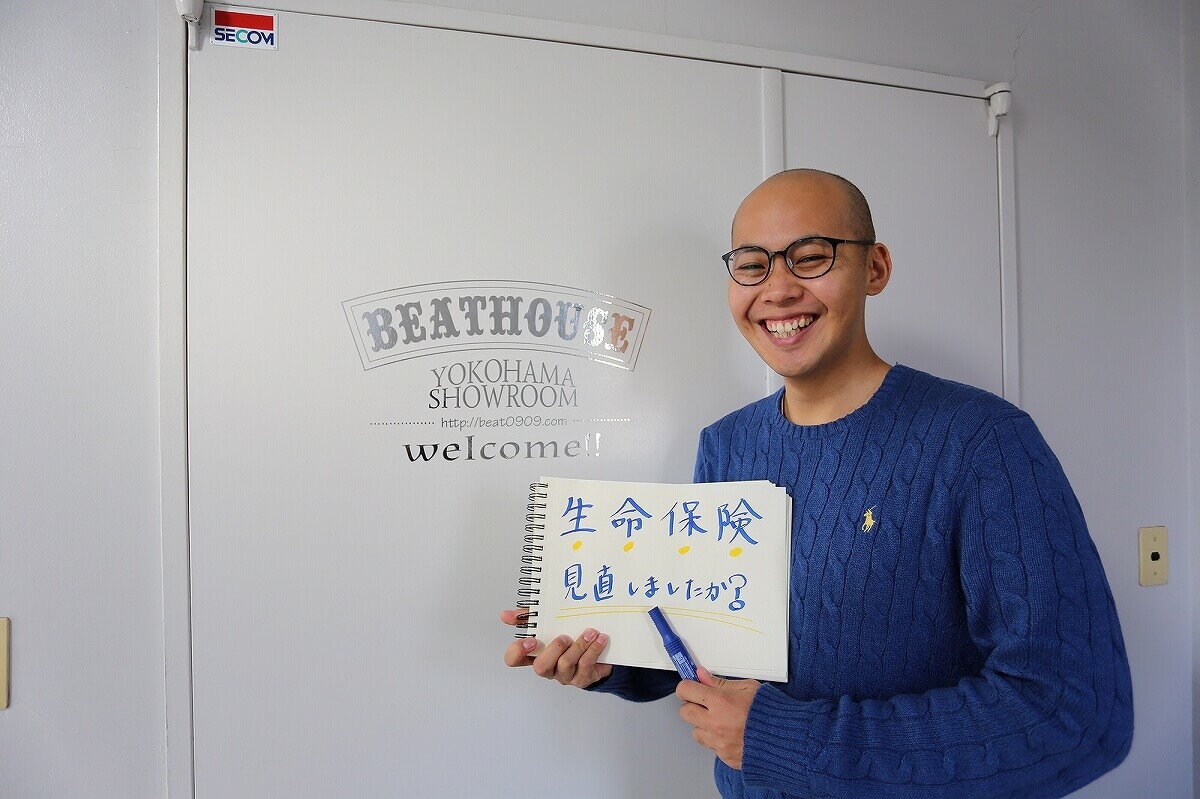 SECOM
BEATHOUSE
YOKOHAMA
SHOWROOM
http://beat0909.com
welcome!!
生命保険
見直しましたか?